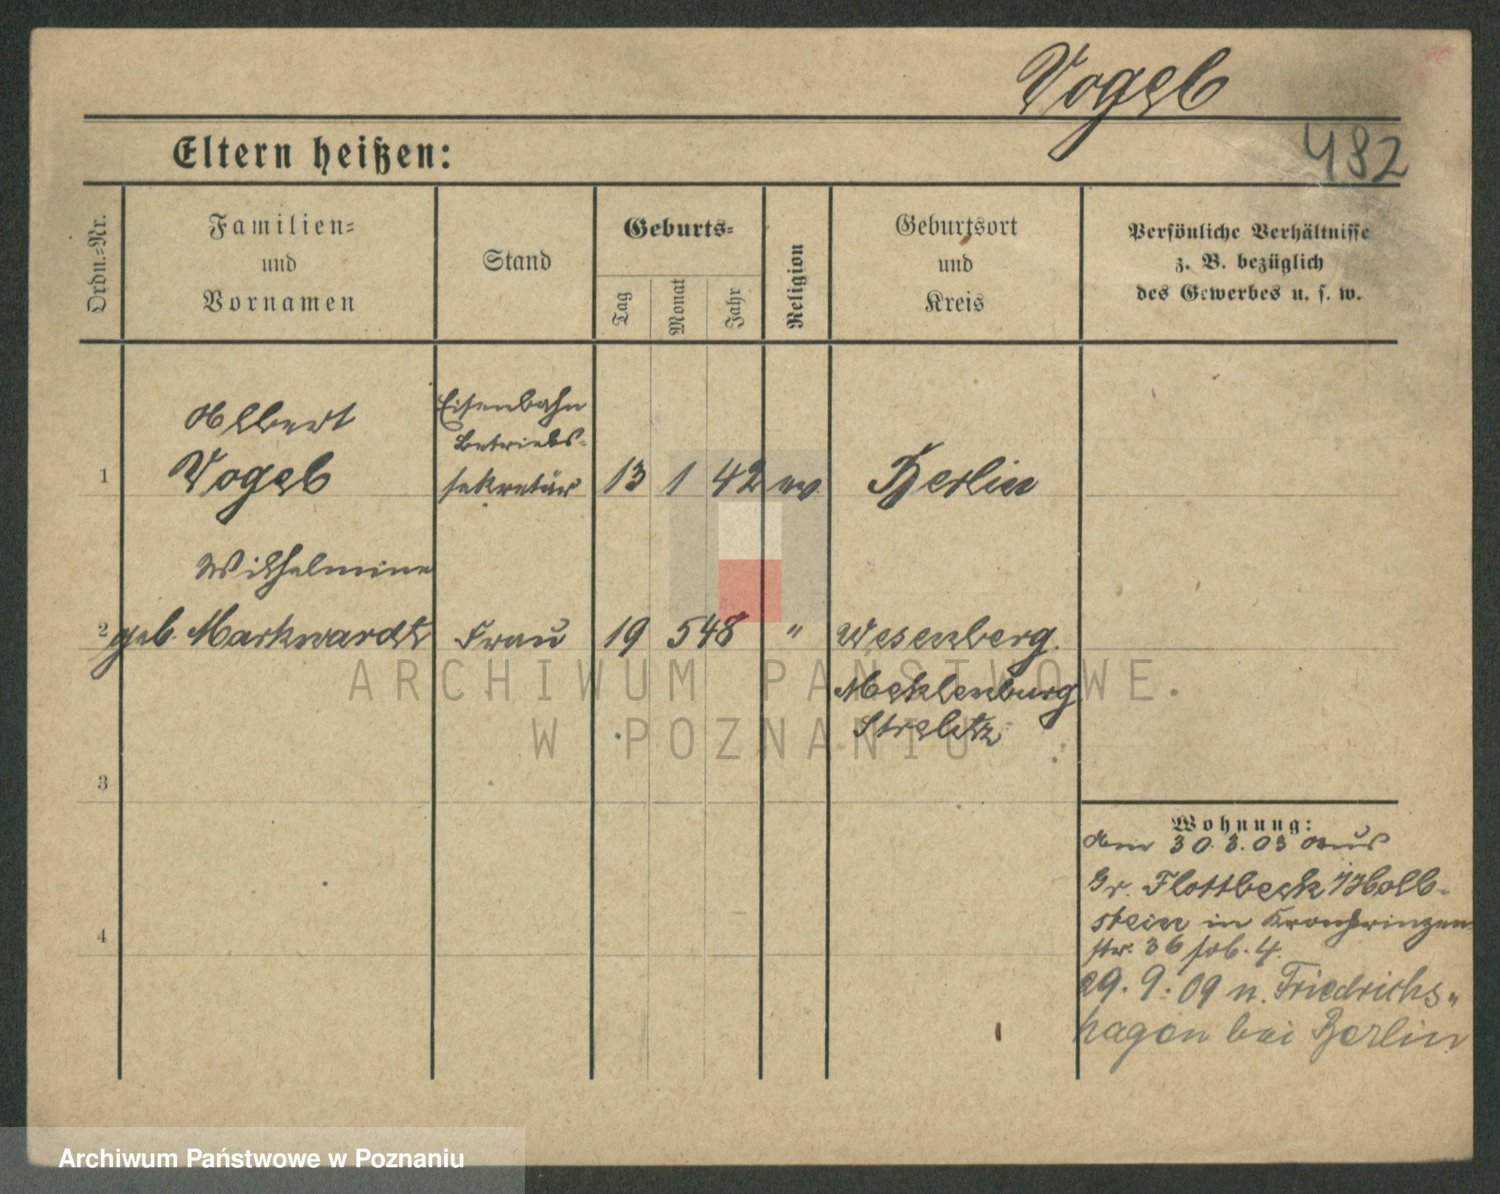 Vogel
482
Eltern heißen:
Ordn.=Nr.
Familien=
und
Vornamen
Stand
Geburts=
Tag
Monat
Jahr
Religion
Geburtsort
und
Kreis
Persönliche Verhältnisse
z. B. bezüglich
des Gewerbes u. s. w.
1
Albert
Vogel
Eisenbahn
Betriebs-
sekretär
13 1 42 ev
Berlin
2
Wilhelmine
geb. Markwardt
Frau
19 5 48 "
Wesenberg.
Mecklenburg
Strelitz
3
4
Wohnung:
Am 30.3.03 aus
Gr. Flottbeck / Hol-
stein in Kronprinzen
str. 36 4.
29. 9. 09 n. Friedrichs-
hagen bei Berlin
ARCHIWUM PAŃSTWOWE
W POZNANIU
Archiwum Państwowe w Poznaniu